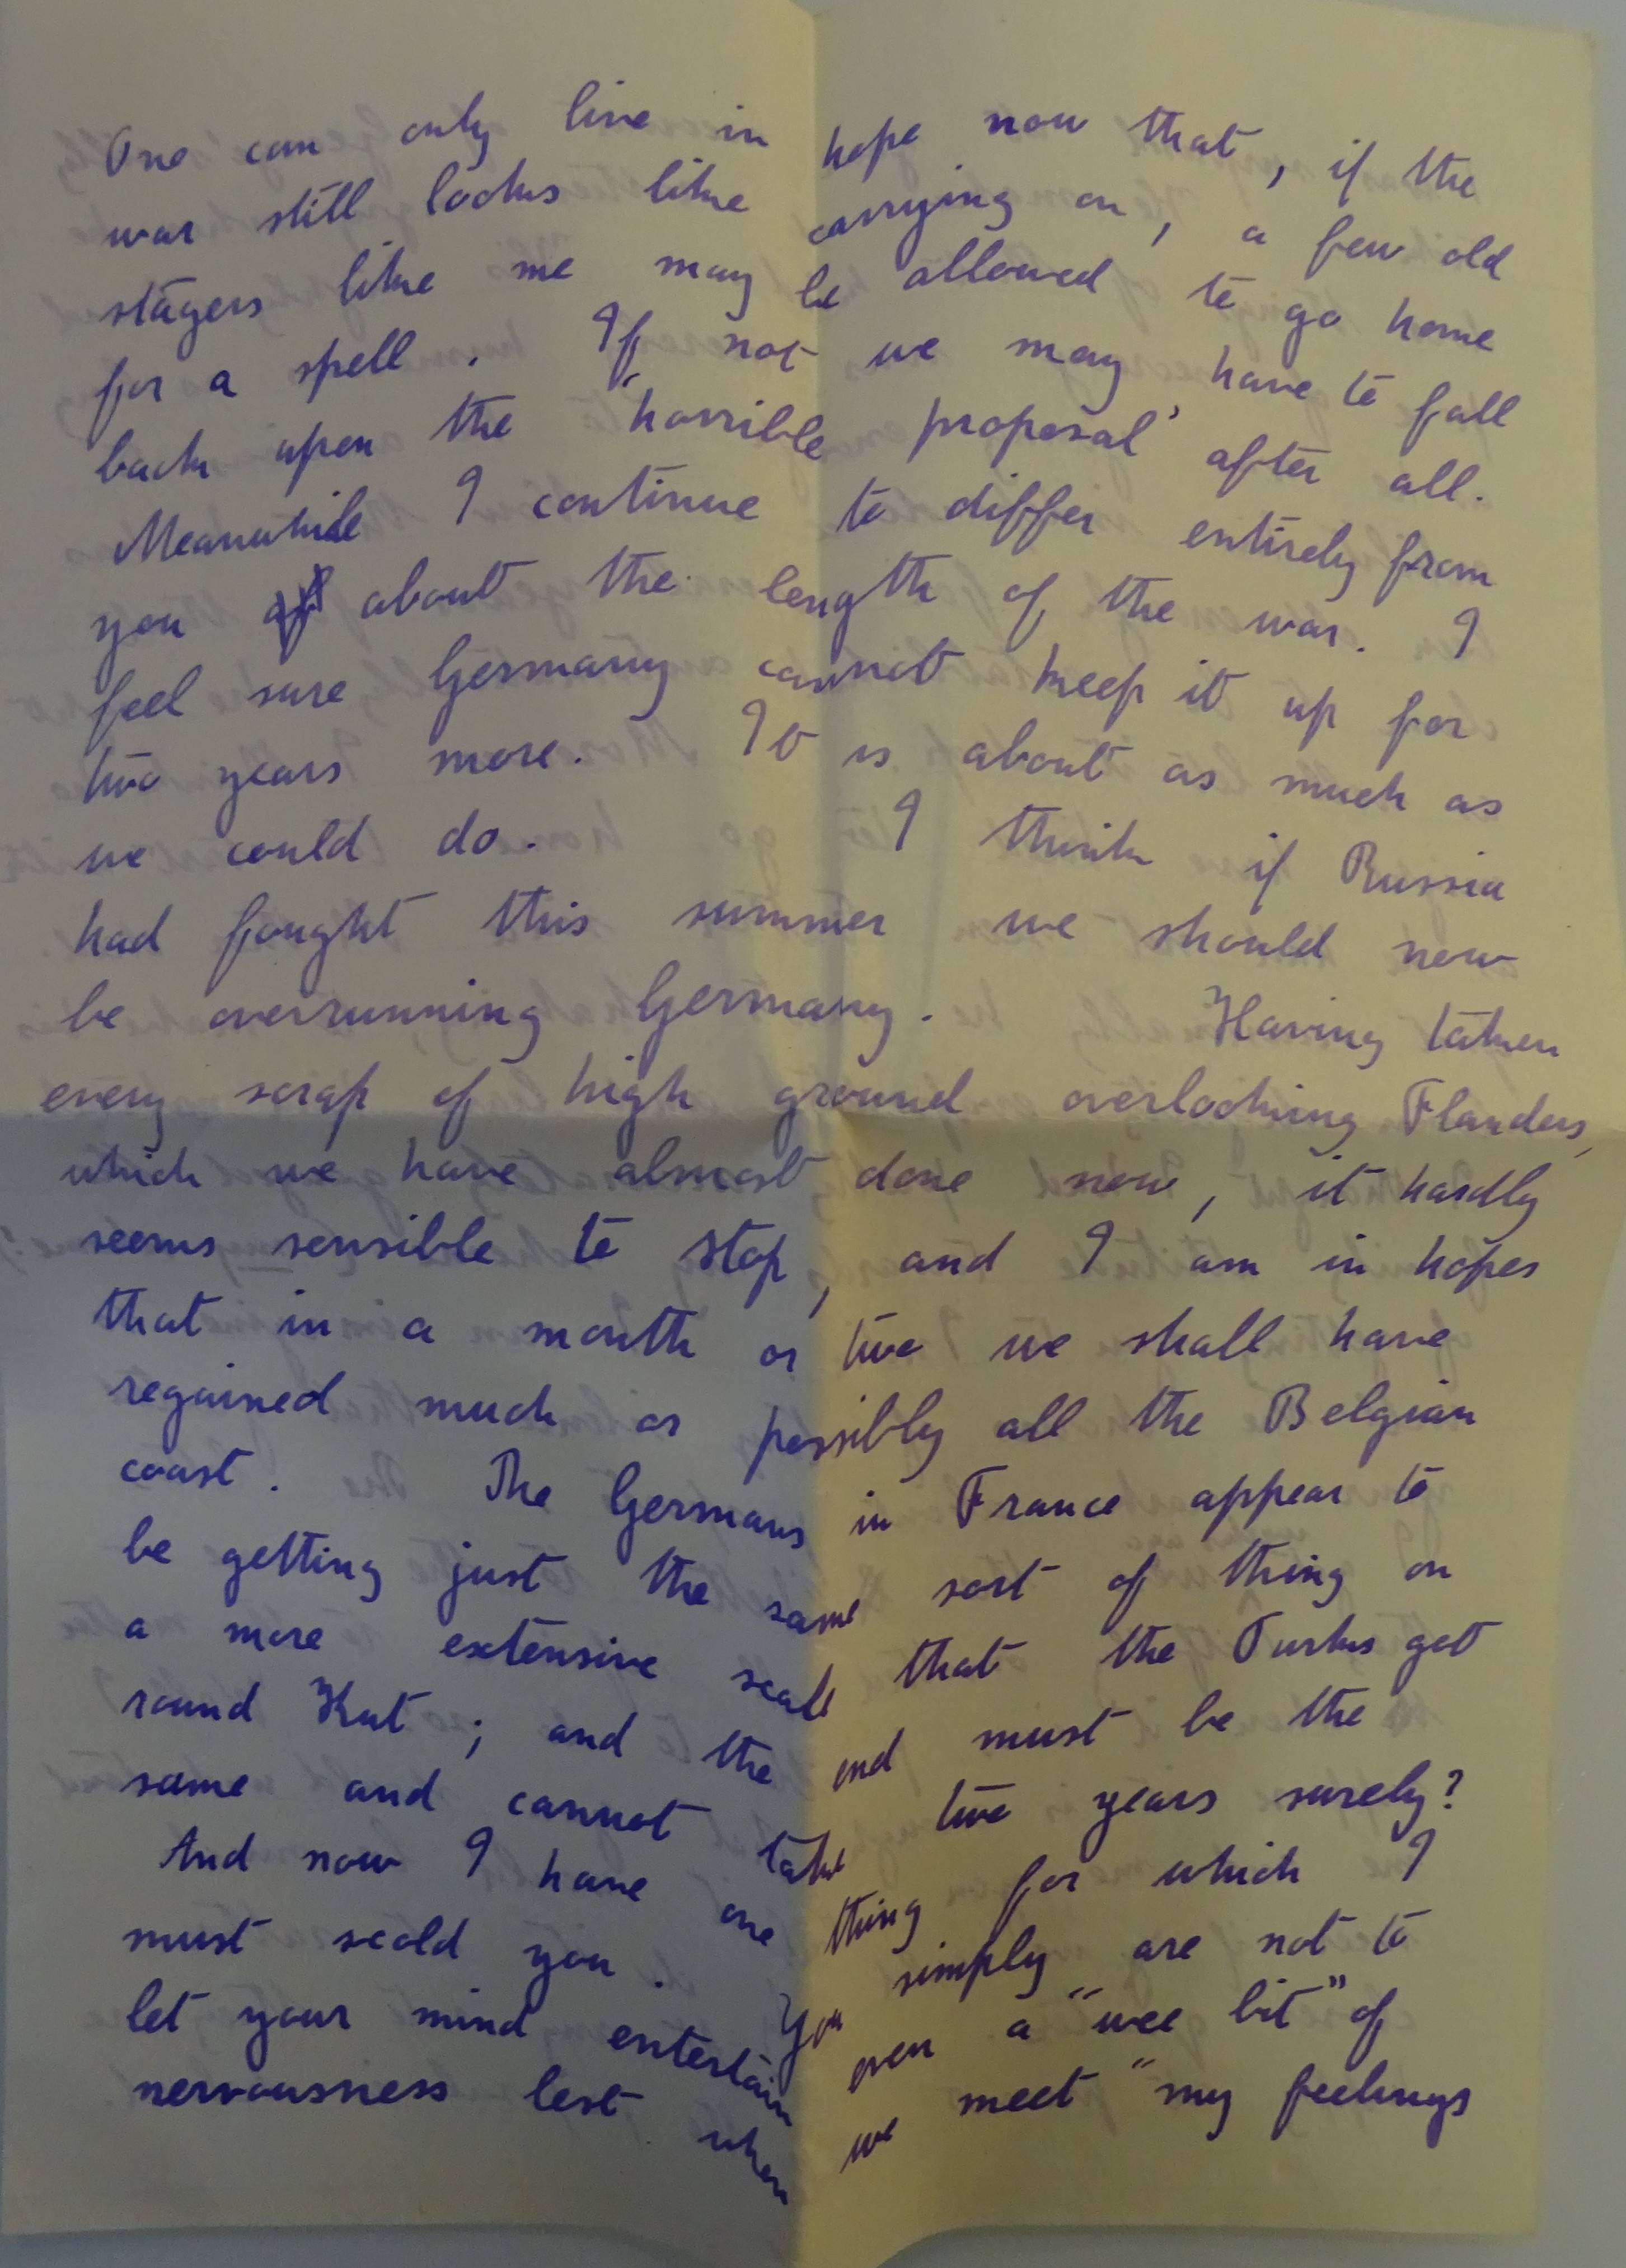 One can only live in hope now that, if the
war still looks like carrying on, a few old
stagers like me may be allowed to go home
for a spell. If not we may have to fall
back upon the "horrible proposal" after all.
Meanwhile I continue to differ entirely from
you about the length of the war. I
feel sure Germany cannot keep it up for
two years more. It is about as much as
we could do. I think if Russia
had fought this summer we should now
be overrunning Germany. Having taken
every scrap of high ground overlooking Flanders,
which we have almost done now, it hardly
seems sensible to stop, and I am in hopes
that in a month or two we shall have
regained much or possibly all the Belgian
coast. The Germans in France appear to
be getting just the same sort of thing on
a more extensive scale that the Turks got
round Kut; and the end must be the
same and cannot take two years surely?
And now I have one thing for which I
must scold you. You simply are not to
let your mind entertain even a "wee bit" of
nervousness lest when we meet "my feelings